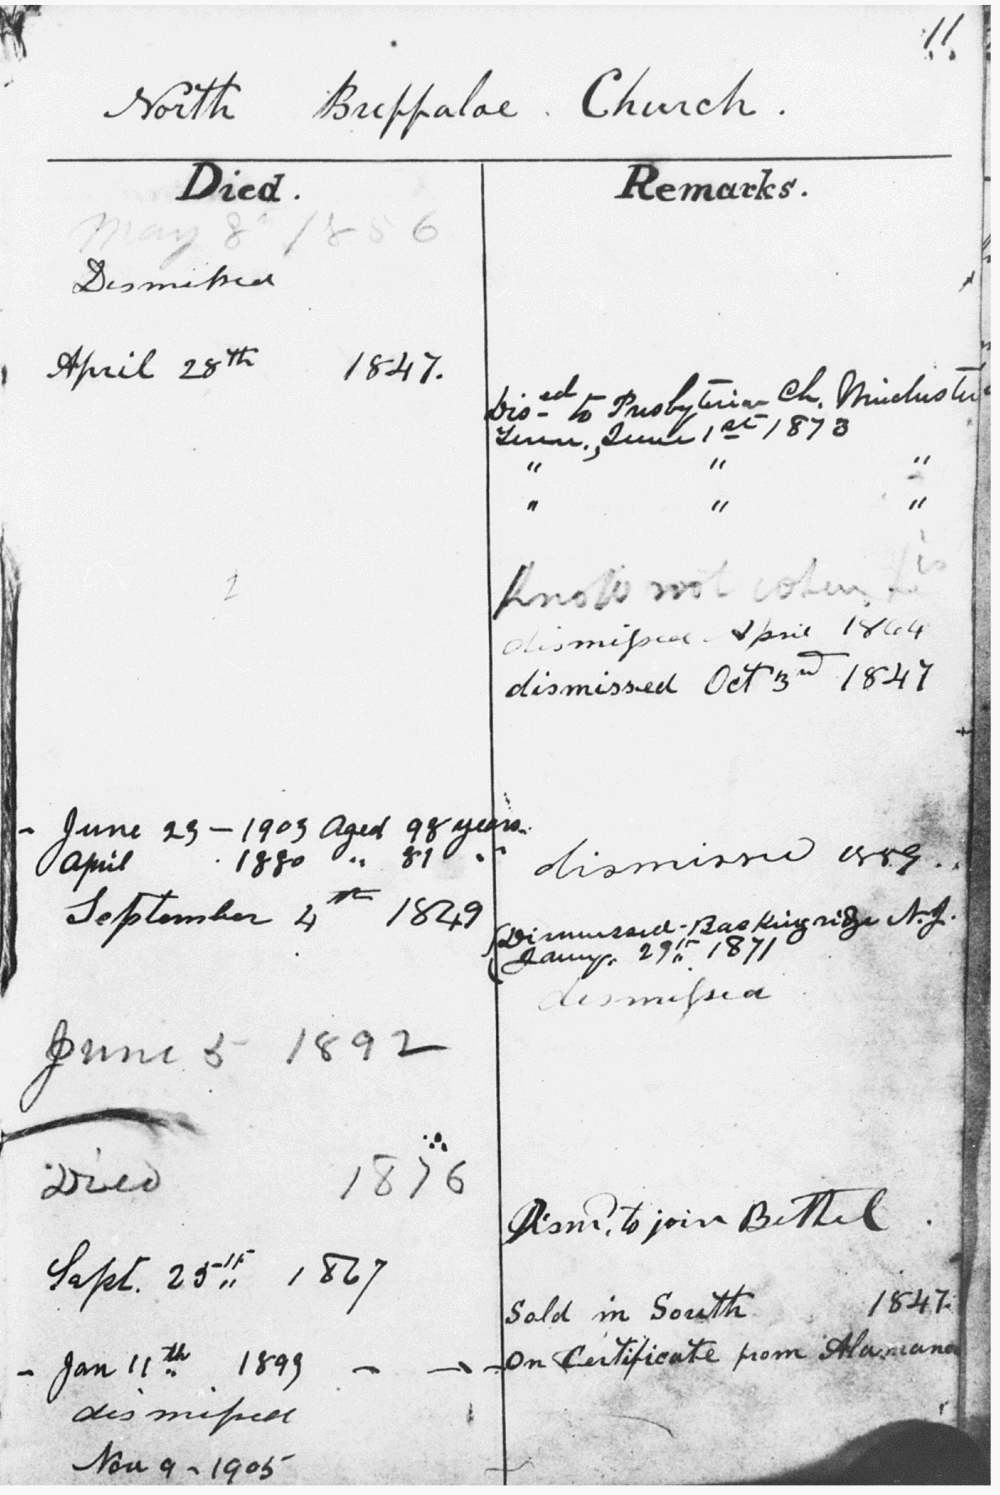 11
North Buffaloe Church.
Died. Remarks.
May 8th 1856
Dismissed
April 28th 1847.
Dis-ed to Presbyterian Ch. Winchester
Tenn., June 1st 1873
" " "
" " "
Know not when
dismissed April 1864
dismissed Oct 3rd 1847
- June 23 - 1903 Aged 98 years.
April 1880 " 81 "
dismissed 1889
September 4th 1849
Dismissed - Baskingridge N.J.
Jany. 29th 1871
dismissed
June 5 1892
Died 1876
Dism'd. to join Bethel
Sept. 25th 1867
Sold in South 1847.
- Jan 11th 1899 - - - On Certificate from Alamance
dismissed
Nov 9 - 1905